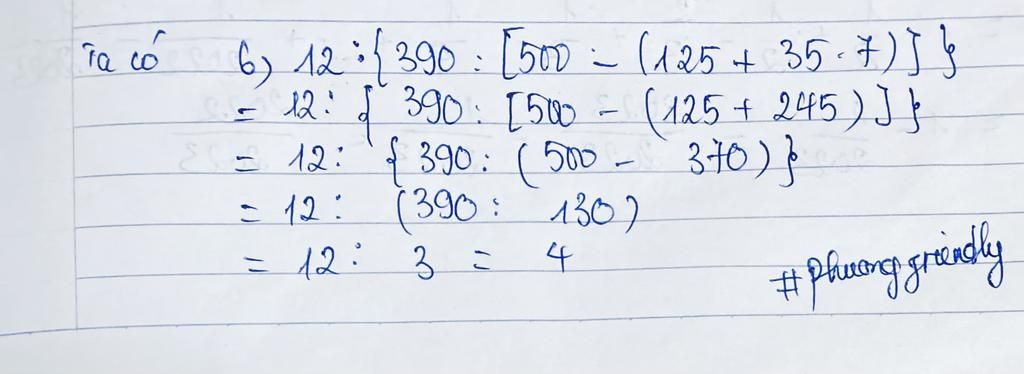 Ta có 6) 12 : { 390 : [500 - (125 + 35 . 7)] }
= 12 : { 390 : [500 - (125 + 245)] }
= 12 : { 390 : (500 - 370) }
= 12 : (390 : 130)
= 12 : 3 = 4
#phuonggriendly